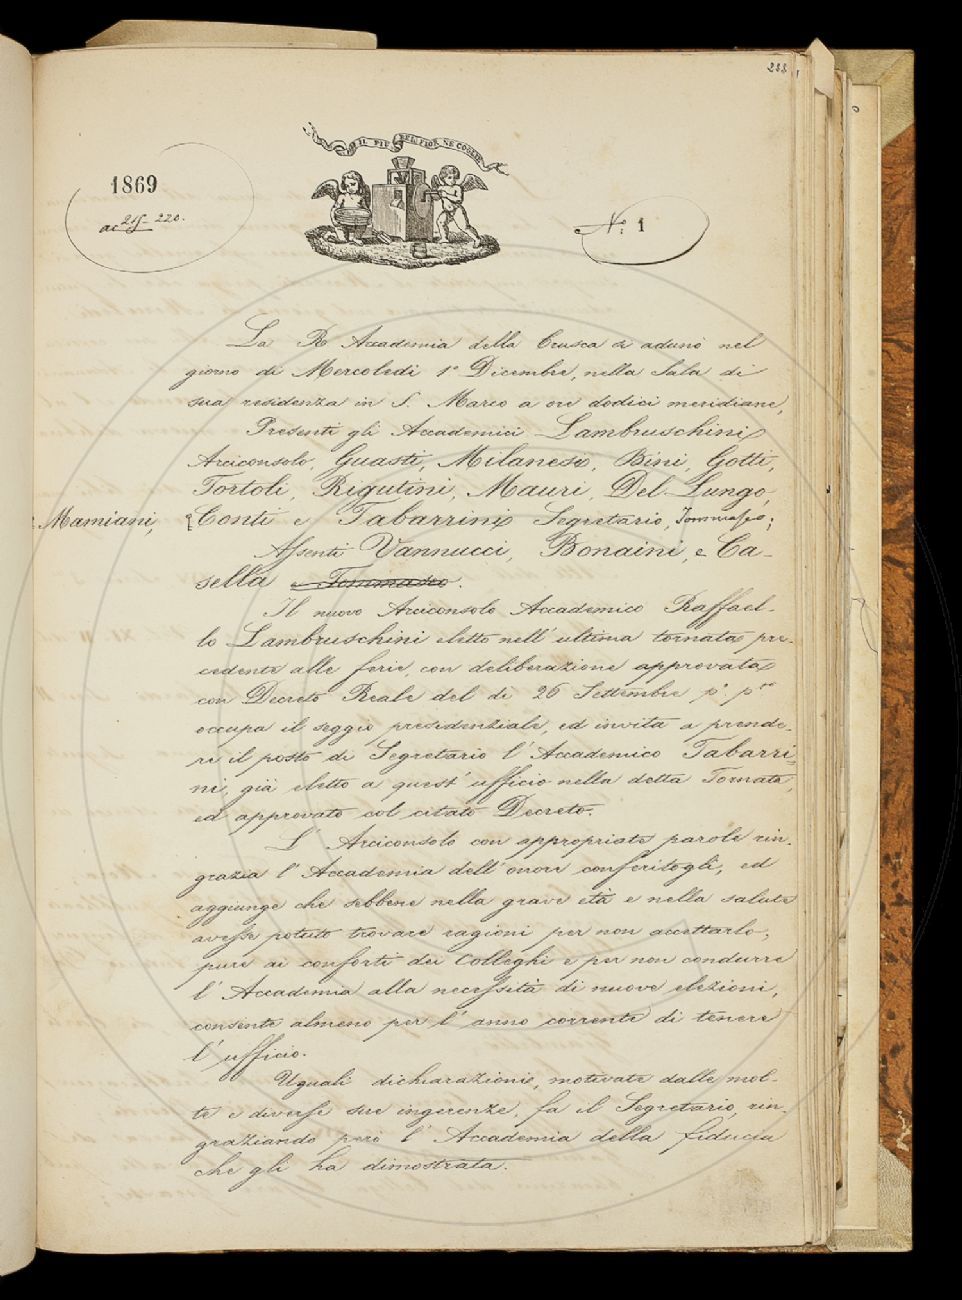 233
IL PIÙ BEL FIOR NE COGLIE
1869
ac 215-220.
N.: 1
La R Accademia della Crusca si adunò nel
giorno di Mercoledì 1° Dicembre, nella Sala di
sua residenza in S. Marco a ore dodici meridiane,
Presenti gli Accademici Lambruschini
Arciconsolo, Guasti, Milanesi, Bini, Gotti,
Tortoli, Rigutini, Mauri, Del Lungo,
Mamiani, Conti e Tabarrini Segretario, Tommaseo;
Assenti Vannucci, Bonaini, e Ca-
sella e Tommaseo.
Il nuovo Arciconsolo Accademico Raffael-
lo Lambruschini eletto nell' ultima tornata pre-
cedente alle ferie, con deliberazione approvata
con Decreto Reale del dì 26 Settembre p.° p.to
occupa il seggio presidenziale, ed invita a prende-
re il posto di Segretario l' Accademico Tabarri-
ni, già eletto a quest' ufficio nella detta Tornata,
ed approvato col citato Decreto.
L' Arciconsolo con appropriate parole rin-
grazia l' Accademia dell' onore conferitogli, ed
aggiunge che sebbene nella grave età e nella salute
avesse potuto trovare ragioni per non accettarlo,
pure ai conforti dei Colleghi e per non condurre
l' Accademia alla necessità di nuove elezioni,
consente almeno per l' anno corrente di tenere
l' ufficio.
Uguali dichiarazioni, motivate dalle mol-
te e diverse sue ingerenze, fa il Segretario, rin-
graziando però l' Accademia della fiducia
che gli ha dimostrata.